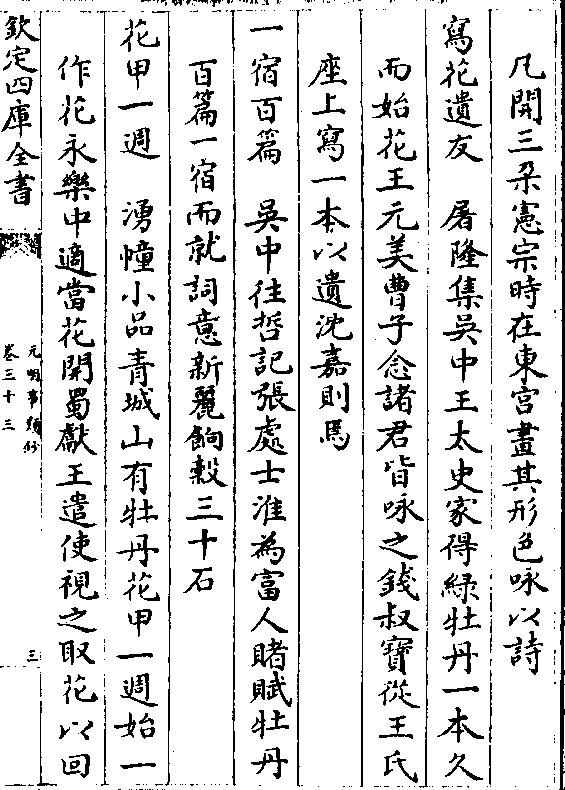 凡開三朶憲宗時在東宮畫其形色咏以詩
寫花遺友　屠隆集吳中王太史家得綠牡丹一本久
而始花王元美曹子念諸君皆咏之錢叔寶從王氏
座上寫一本以遺沈嘉則焉
一宿百篇　吳中往哲記張處士淮為富人賭賦牡丹
百篇一宿而就詞意新麗餉穀三十石
花甲一週　湧幢小品青城山有牡丹花甲一週始一
作花永樂中適當花開蜀獻王遣使視之取花以回
欽定四庫全書
元明事類鈔
卷三十三
三